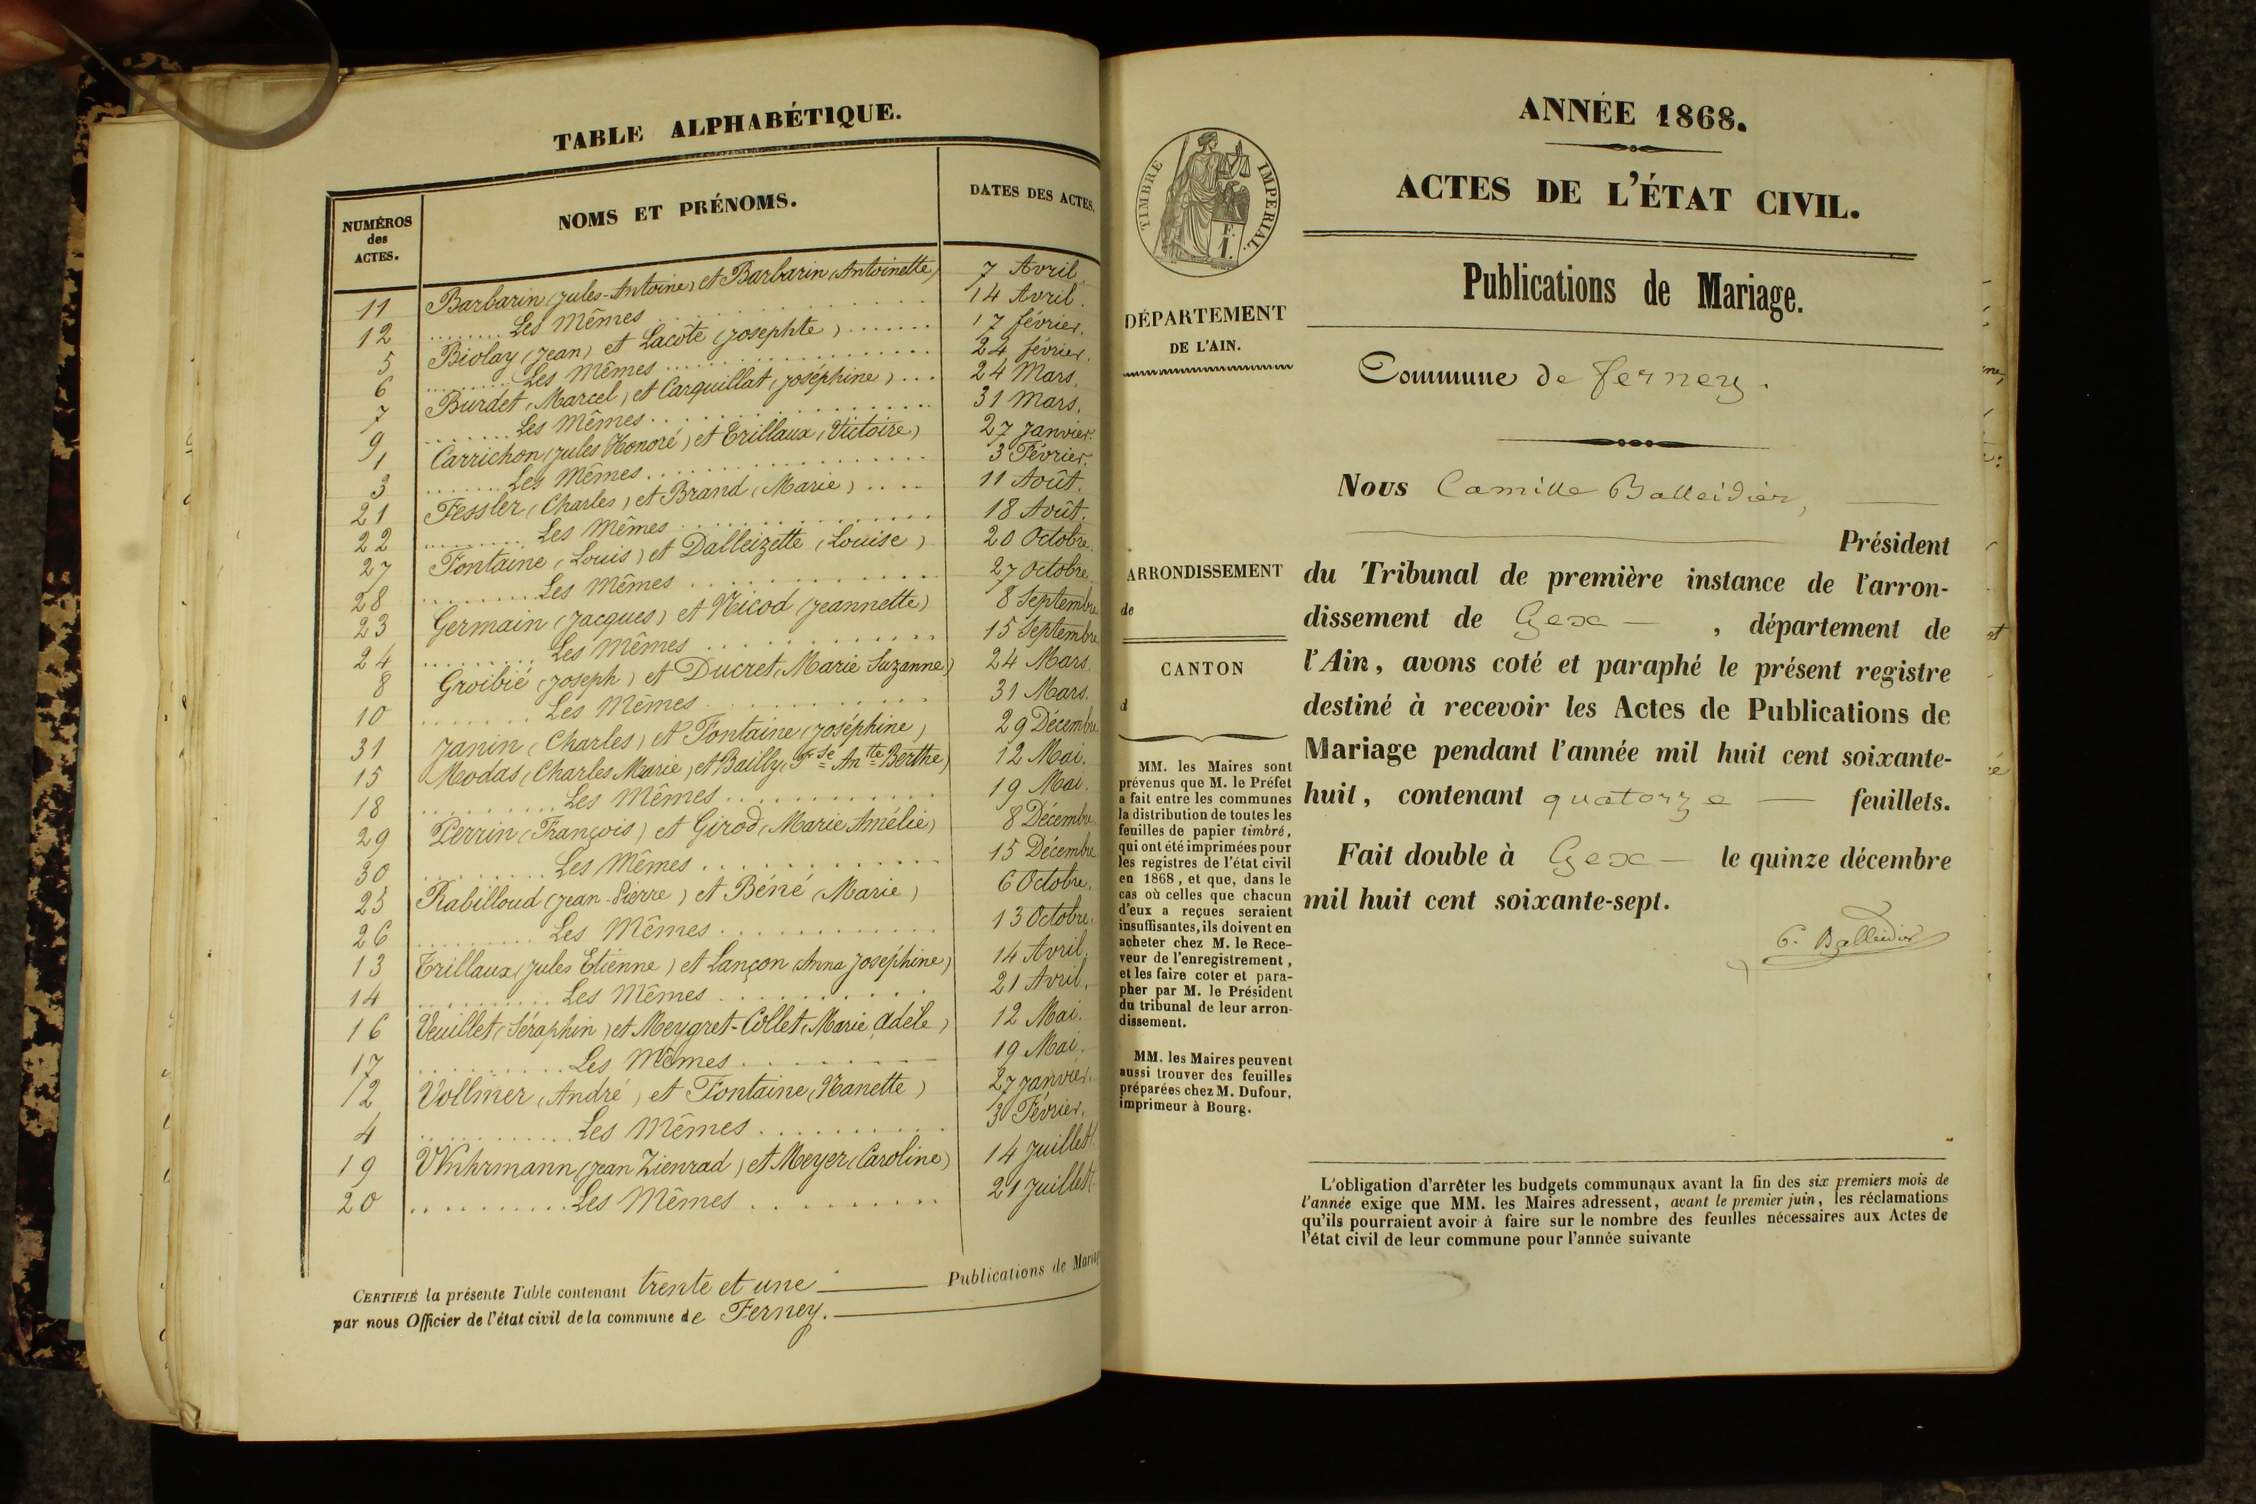 TABLE ALPHABÉTIQUE.
NUMÉROS des ACTES. NOMS ET PRÉNOMS. DATES DES ACTES.
11 Barbarin (Jules-Antoine) et Barbarin (Antoinette) 7 Avril.
12 ........ Les Mêmes ........ 14 Avril.
5 Biolay (Jean) et Lacote (Josephte) ....... 17 février.
6 ........ Les Mêmes ........ 24 février.
7 Burdet (Marcel) et Carquillat (Joséphine) ... 24 Mars.
9 ........ Les Mêmes ........ 31 Mars.
1 Carrichon (Jules Honoré) et Trillaux (Victoire) 27 Janvier.
3 ........ Les Mêmes ........ 3 Février.
21 Fessler (Charles) et Brand (Marie) .... 11 Août.
22 ........ Les Mêmes ........ 18 Août.
27 Fontaine (Louis) et Dalleizette (Louise) 20 Octobre.
28 ........ Les Mêmes ........ 27 Octobre
23 Germain (Jacques) et Nicod (Jeannette) 8 Septembre
24 ........ Les Mêmes ........ 15 Septembre
8 Groibié (Joseph) et Ducret (Marie Suzanne) 24 Mars.
10 ........ Les Mêmes ........ 31 Mars.
31 Janin (Charles) et Fontaine (Joséphine) 29 Décembre
15 Modas (Charles Marie) et Bailly (Fse Antte Berthe) 12 Mai.
18 ........ Les Mêmes ........ 19 Mai.
29 Perrin (François) et Girod (Marie Amélie) 8 Décembre.
30 ........ Les Mêmes ........ 15 Décembre
25 Rabilloud (Jean-Pierre) et Béné (Marie) 6 Octobre.
26 ........ Les Mêmes ........ 13 Octobre.
13 Trillaux (Jules Etienne) et Lançon (Anna Joséphine) 14 Avril.
14 ........ Les Mêmes ........ 21 Avril.
16 Veuillet (Séraphin) et Meygret-Collet (Marie Adèle) 12 Mai.
17 ........ Les Mêmes ........ 19 Mai.
2 Vollmer (André) et Fontaine (Nanette) 27 Janvier.
4 ........ Les Mêmes ........ 3 Février.
19 (Jean Zienrad) et Meyer (Caroline) 14 Juillet.
20 ........ Les Mêmes ........ 21 Juillet.
CERTIFIÉ la présente Table contenant trente et une Publications de
par nous Officier de l'état civil de la commune de Ferney.
TIMBRE IMPÉRIAL.
DÉPARTEMENT
DE L'AIN.
ARRONDISSEMENT
de
CANTON
d
MM. les Maires sont
prévenus que M. le Préfet
a fait entre les communes
la distribution de toutes les
feuilles de papier timbré,
qui ont été imprimées pour
les registres de l'état civil
en 1868, et que, dans le
cas où celles que chacun
d'eux a reçues seraient
insuffisantes, ils doivent en
acheter chez M. le Rece-
veur de l'enregistrement,
et les faire coter et para-
pher par M. le Président
du tribunal de leur arron-
dissement.
MM. les Maires peuvent
aussi trouver des feuilles
préparées chez M. Dufour,
imprimeur à Bourg.
ANNÉE 1868.
ACTES DE L'ÉTAT CIVIL.
Publications de Mariage.
Commune de Ferney.
Nous Camille Balleidier,
Président
du Tribunal de première instance de l'arron-
dissement de Gex , département de
l'Ain, avons coté et paraphé le présent registre
destiné à recevoir les Actes de Publications de
Mariage pendant l'année mil huit cent soixante-
huit, contenant quatorze feuillets.
Fait double à Gex le quinze décembre
mil huit cent soixante-sept.
C. Balleidier
L'obligation d'arrêter les budgets communaux avant la fin des six premiers mois de
l'année exige que MM. les Maires adressent, avant le premier juin, les réclamations
qu'ils pourraient avoir à faire sur le nombre des feuilles nécessaires aux Actes de
l'état civil de leur commune pour l'année suivante